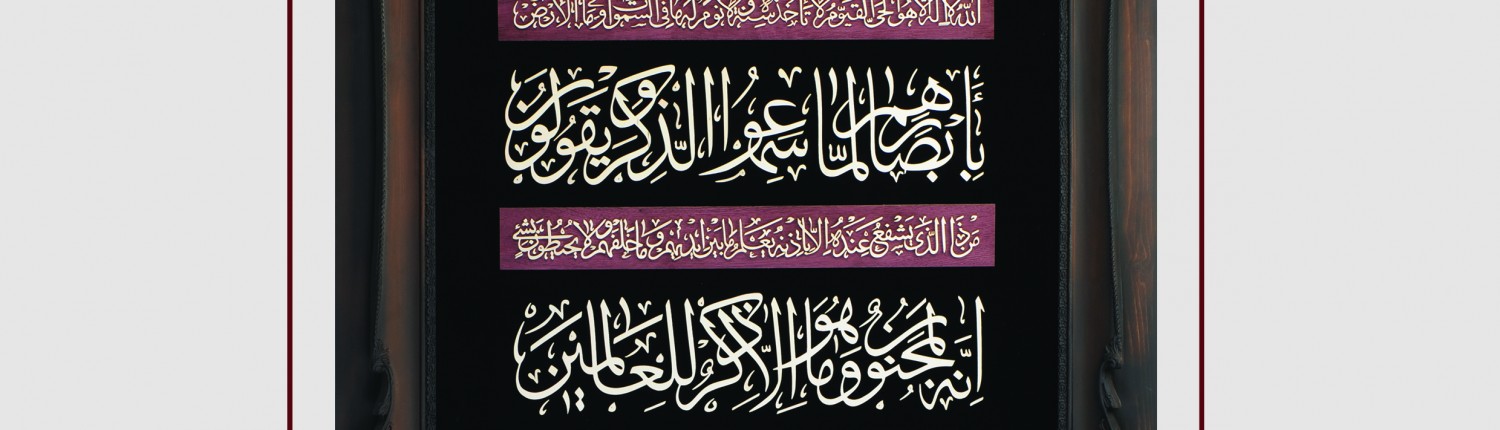 الله لا اله هو الحی القیوم لا تاخذه سنة و لا نوم له ما فی السموات و ما الارض
بِأَبصارِهِم لَمّا سَمِعُوا الذِّکرَ وَ یَقولُونَ
مَن ذا الَّذی یَشفَعُ عِندَهُ اِلّا بِاِذنِه یَعلَمُ ما بَینَ اَیدیهِم وَ ما خَلفَهُم وَ لا یُحیطُونَ بِشَیءٍ
اِنَّهُ لَمَجنُون وَ ما هُوَ اِلّا ذِکرٌ لِلعالَمینَ